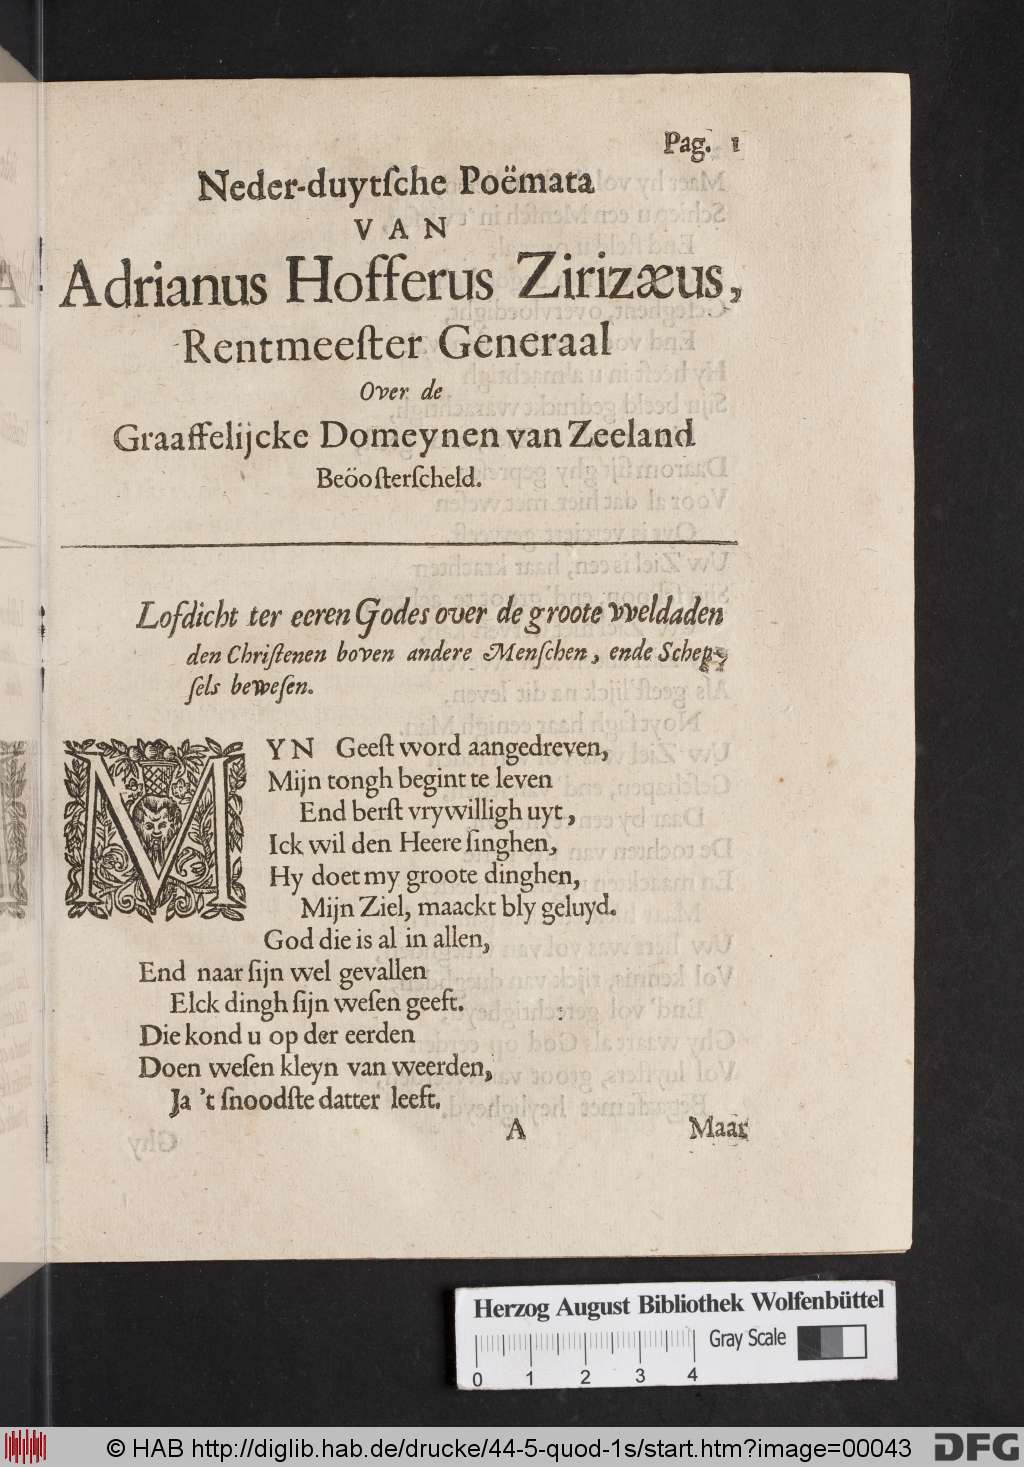 Pag. 1
Neder-duytſche Poëmata
VAN
Adrianus Hofferus Zirizæus,
Rentmeeſter Generaal
Over de
Graaffelijcke Domeynen van Zeeland
Beöoſterſcheld.
Lofdicht ter eeren Godes over de groote vveldaden
den Chriſtenen boven andere Menſchen, ende Schep-
ſels beweſen.
MYN Geeſt word aangedreven,
Mijn tongh begint te leven
End berſt vrywilligh uyt,
Ick wil den Heere ſinghen,
Hy doet my groote dinghen,
Mijn Ziel, maackt bly geluyd.
God die is al in allen,
End naar ſijn wel gevallen
Elck dingh ſijn weſen geeft.
Die kond u op der eerden
Doen weſen kleyn van weerden,
Ja 't ſnoodſte datter leeft.
A Maar
Herzog August Bibliothek Wolfenbüttel
Gray Scale
0 1 2 3 4
© HAB http://diglib.hab.de/drucke/44-5-quod-1s/start.htm?image=00043
DFG